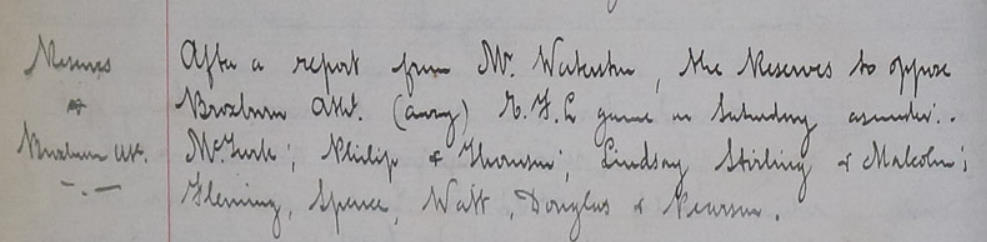 Reserves
v
Broxburn Ath.
After a report from Mr. Waterston, the Reserves to oppose
Broxburn Ath. (away) E.F.L game on Saturday as under..
McTurk; Philip & Thomson; Lindsay Stirling & Malcolm;
Fleming, Spence, Watt, Douglas & Pearson.